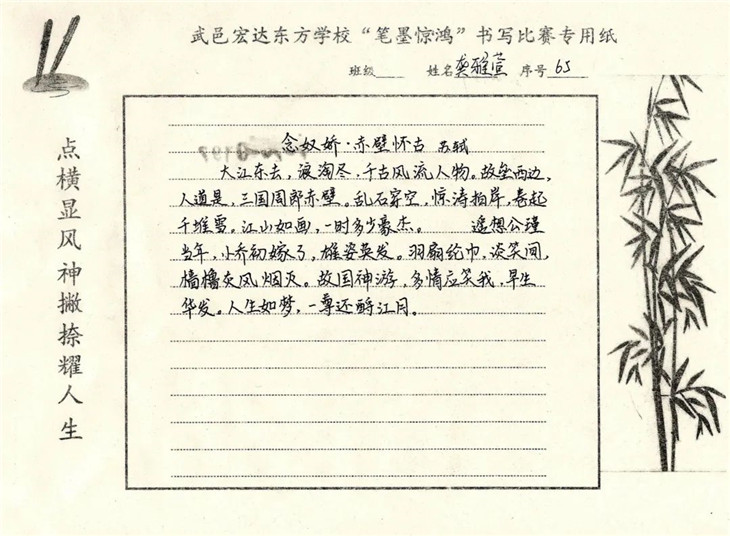 武邑宏达东方学校“笔墨惊鸿”书写比赛专用纸
班级 姓名龚雅萱 序号65
点横显风神撇捺耀人生
念奴娇·赤壁怀古 苏轼
大江东去，浪淘尽，千古风流人物。故垒西边，
人道是，三国周郎赤壁。乱石穿空，惊涛拍岸，卷起
千堆雪。江山如画，一时多少豪杰。 遥想公瑾
当年，小乔初嫁了，雄姿英发。羽扇纶巾，谈笑间，
樯橹灰飞烟灭。故国神游，多情应笑我，早生
华发。人生如梦，一尊还酹江月。